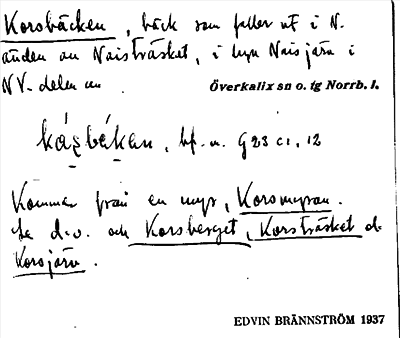 Korsbäcken, bäck som faller ut i N.
änden av Naisträsket, i byn Naisjärv i
NV. delen av Överkalix sn o. tg Norrb. l.
bf. n. G 23 c1, 12
Kommer från en myr, Korsmyran.
Se d.o. och Korsberget, Korsträsket o.
Korsjärv.
EDVIN BRÄNNSTRÖM 1937